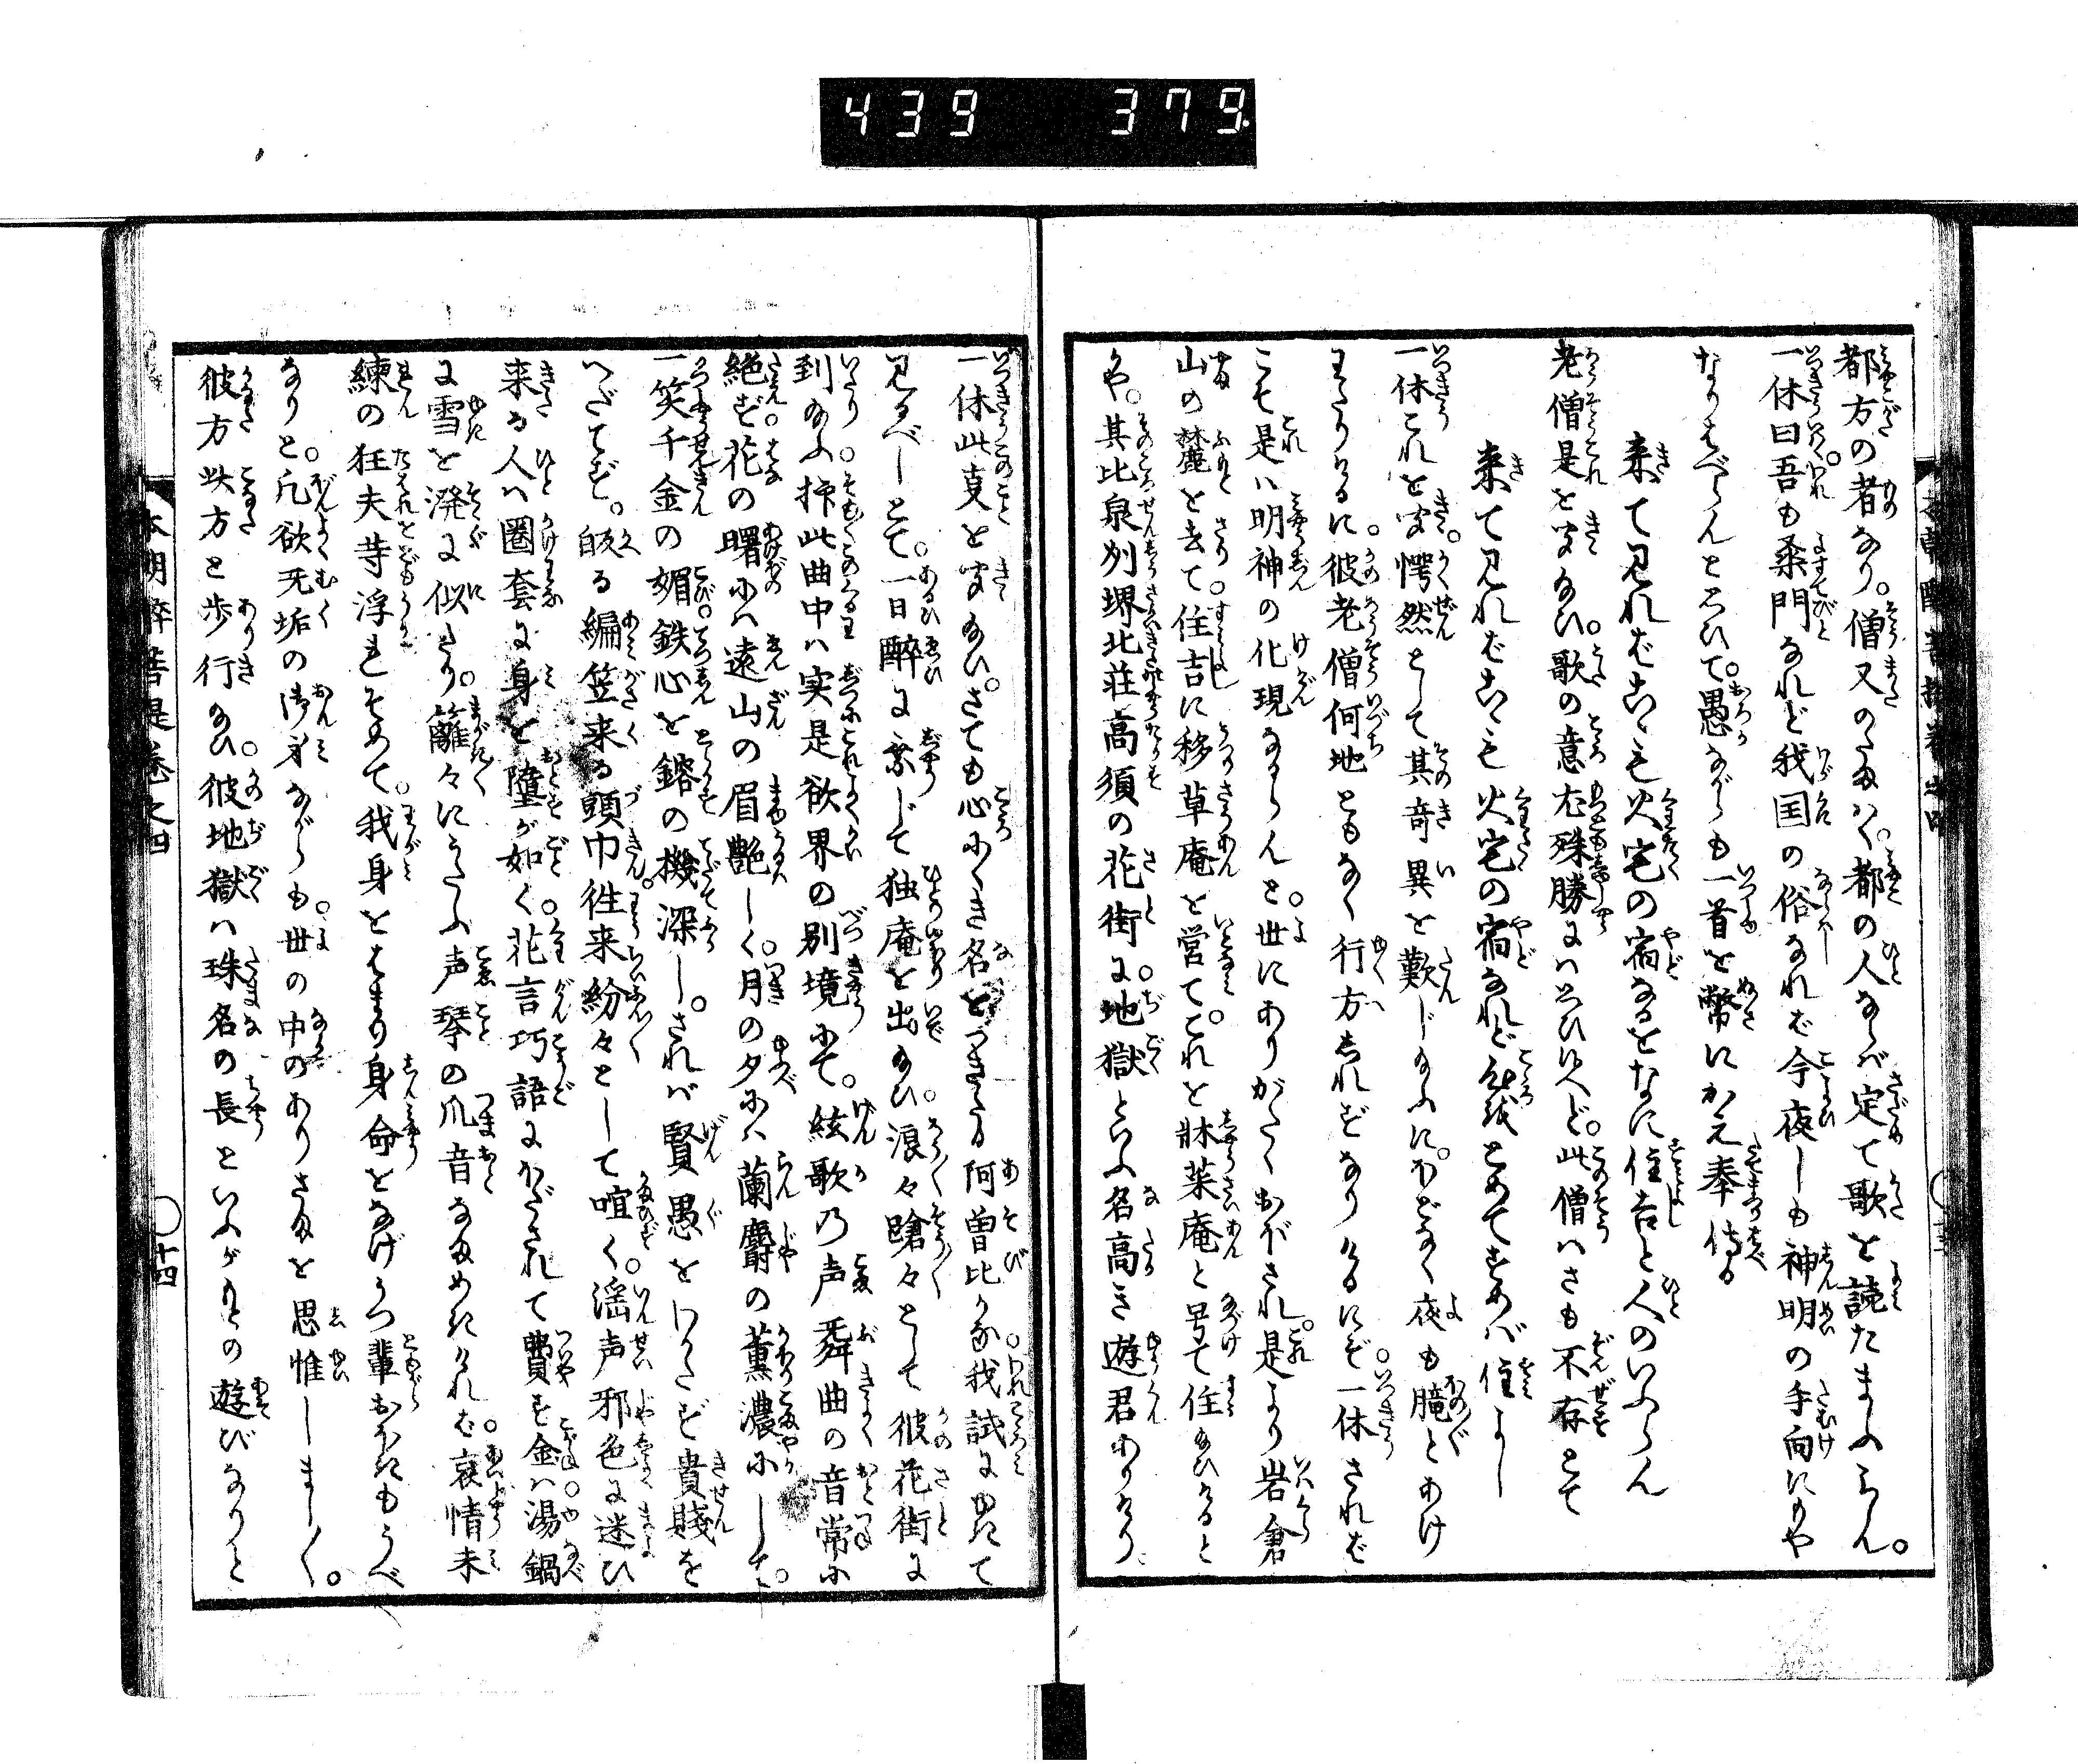 439 379
都方の者なり。僧又のたまはく。都の人ならば定て歌を読たまふらん。
一休曰吾も桑門なれど我国の俗なれば今夜しも神明の手向にもや
なりはべらんとといひて。愚ながらも一首を幣にかえ奉侍る
来て見ればこゝも火宅の宿なるをなに住吉と人のいふらん
老僧是を聞給ひ。歌の意尤殊勝には候へど。此僧はさも不存とて
来て見ればこゝも火宅の宿なれど心をとめてすめば住よし
一休これを聞。愕然として其奇異を歎じ給ふに。ほどなく夜も朧とあけ
わたりけるに。彼老僧何地ともなく行方しれずなりけるにぞ。一休されば
こそ是は明神の化現ならんと。世にありがたくおぼされ。是より岩倉
山の麓を去て。住吉に移草庵を営て。これを牀菜庵と号て住給ひけると
や。其比泉州堺北荘高須の花街に。地獄といふ名高き遊君ありけり
一休此事を聞給ひ。さても心にくき名をつきたる阿曽比かな。我試にゆきて
見るべしとて。一日酔に乗じて独庵を出給ひ。浪々蹌々として彼花街に
到給ふ。抑此曲中は実是欲界の別境にて。絃歌の声舞曲の音常に
絶ず。花の曙には遠山の眉艶しく。月の夕には蘭麝の薫濃にして。
一笑千金の媚。鉄心を鎔の機深し。されば賢愚をわかたず貴賤を
へだてず。皈る編笠来る頭巾。往来紛々として喧く。滛声邪色に迷ひ
来る人は圏套に身を墮が如く。花言巧語にほだされて費す金は。湯鍋
に雪を溌に似たり。籬々にうたふ声琴の爪音なまめきければ。哀情未
練の狂夫等浮れそめて。我身をはまり身命をなげうつ輩おほきもうべ
なりと。凡欲無垢の御身ながらも。世の中のありさまを思惟しまし〳〵。
彼方此方と歩行給ひ。彼地獄は珠名の長といふがもとの遊びなりと
本朝酔菩提巻之四
十四